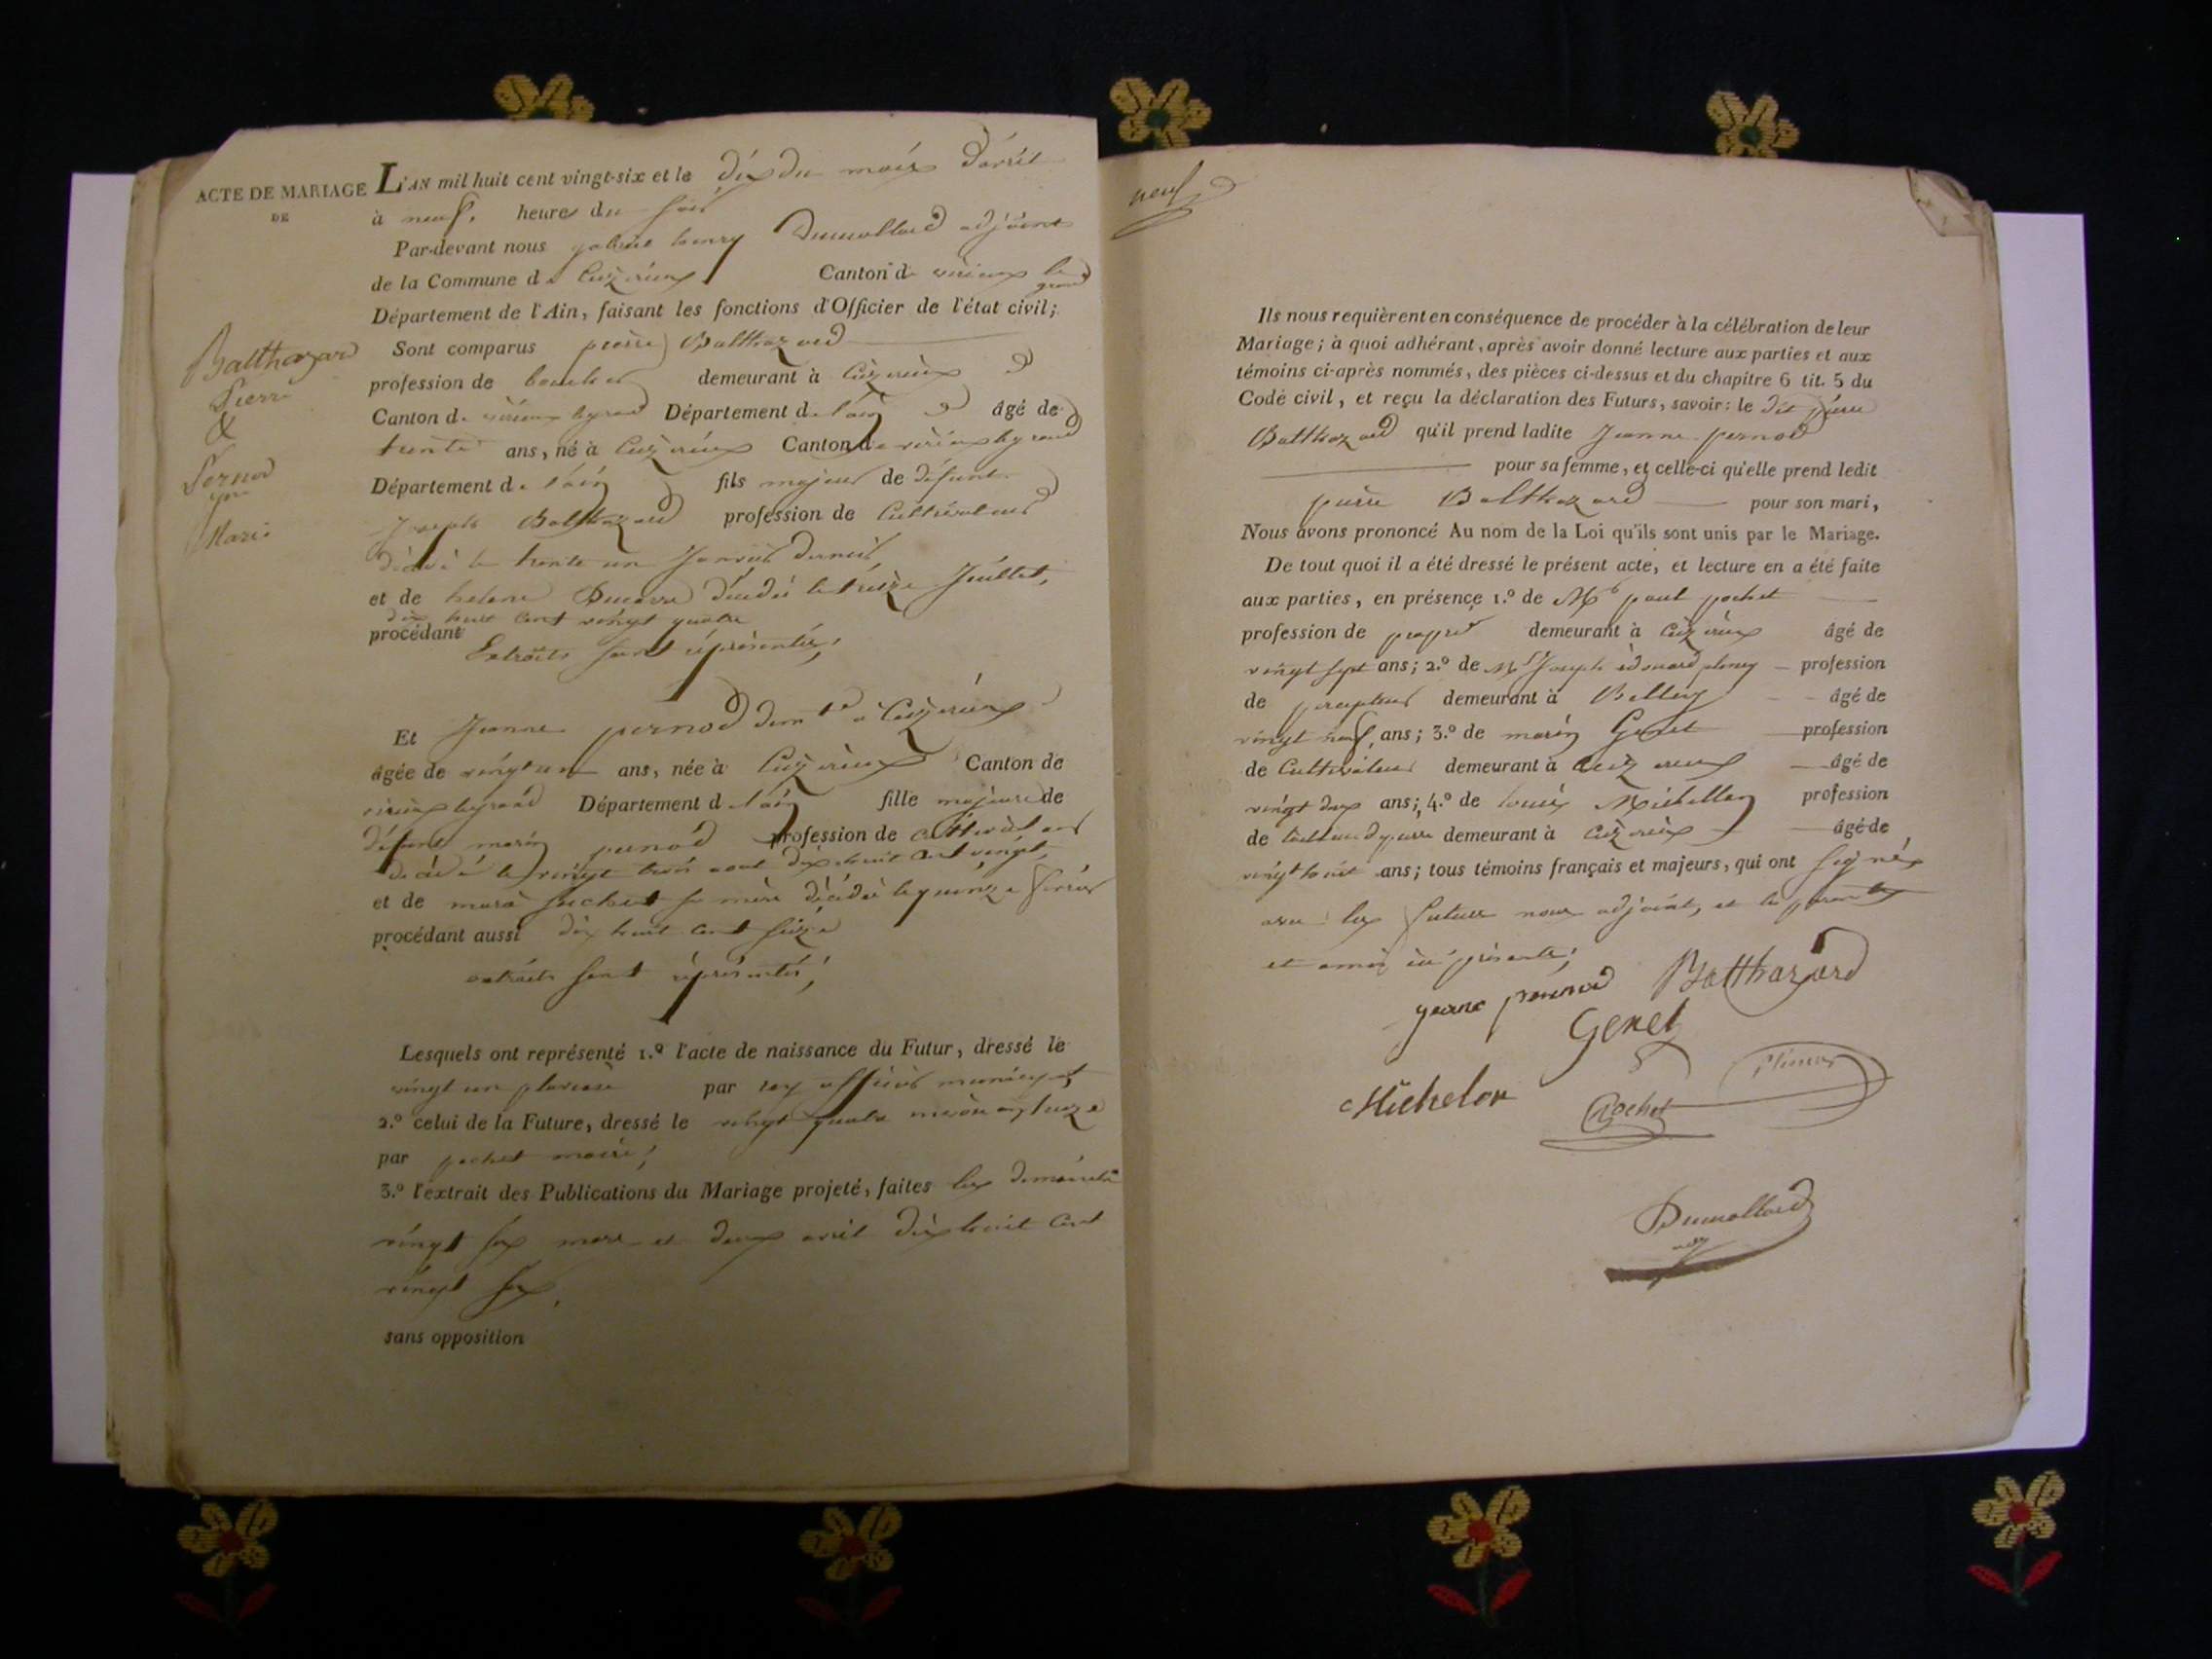 ACTE DE MARIAGE
DE
Balthazard
Pierre
&
Pernod
Marie
L'AN mil huit cent vingt-six et le dix du mois d'avril
à neuf heures du soir
Par-devant nous gabriel henry Dumollard adjoint
de la Commune de Cuzieux Canton de virieux le grand
Département de l'Ain, faisant les fonctions d'Officier de l'état civil;
Sont comparus pierre Balthazard
profession de boucher demeurant à Cuzieux
Canton de virieux le grand Département de l'ain âgé de
trente ans, né à Cuzieux Canton de virieux le grand
Département de l'ain fils majeur de défunt
Joseph Balthazard profession de Cultivateur
décédé le trente un Janvier dernier,
et de helene décédée le treize Juillet,
dix huit cent vingt quatre
procédant
Extraits sont représentés;
Et Jeanne pernod demte à Cuzieux
âgée de vingt un ans, née à Cuzieux Canton de
virieux le grand Département de l'ain fille majeure de
défunt marin pernod profession de cultivateur
décédé le vingt trois aout dix huit cent vingt,
et de sa mère décédée le quinze février
procédant aussi dix huit cent seize
extraits sont représentés;
Lesquels ont représenté 1.º l'acte de naissance du Futur, dressé le
vingt un pluviose par officier municipal,
2.º celui de la Future, dressé le vingt quatre an treize
par pochet maire;
3.º l'extrait des Publications du Mariage projeté, faites les dimanches
vingt six mars et deux avril dix huit cent
vingt six,
sans opposition
neuf
Ils nous requièrent en conséquence de procéder à la célébration de leur
Mariage; à quoi adhérant, après avoir donné lecture aux parties et aux
témoins ci-après nommés, des pièces ci-dessus et du chapitre 6 tit. 5 du
Code civil, et reçu la déclaration des Futurs, savoir: le dit pierre
Balthazard qu'il prend ladite Jeanne pernod
pour sa femme, et celle-ci qu'elle prend ledit
pierre Balthazard pour son mari,
Nous avons prononcé Au nom de la Loi qu'ils sont unis par le Mariage.
De tout quoi il a été dressé le présent acte, et lecture en a été faite
aux parties, en présence 1.º de Mr paul pochet
profession de demeurant à Cuzieux âgé de
vingt sept ans; 2.º de Mr Joseph édouard profession
de percepteur demeurant à Belley âgé de
vingt neuf, ans; 3.º de marin Genet profession
de Cultivateur demeurant à Cuzieux âgé de
vingt deux ans; 4.º de louis Michellon profession
de demeurant à Cuzieux âgé de
vingt huit ans; tous témoins français et majeurs, qui ont signés
avec les futurs nous adjoint, et les parents
et amis ici présents;
Balthazard
Genet
Michelon
Pochet
Dumollard